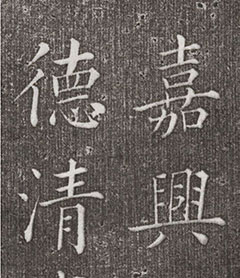 嘉興
德清